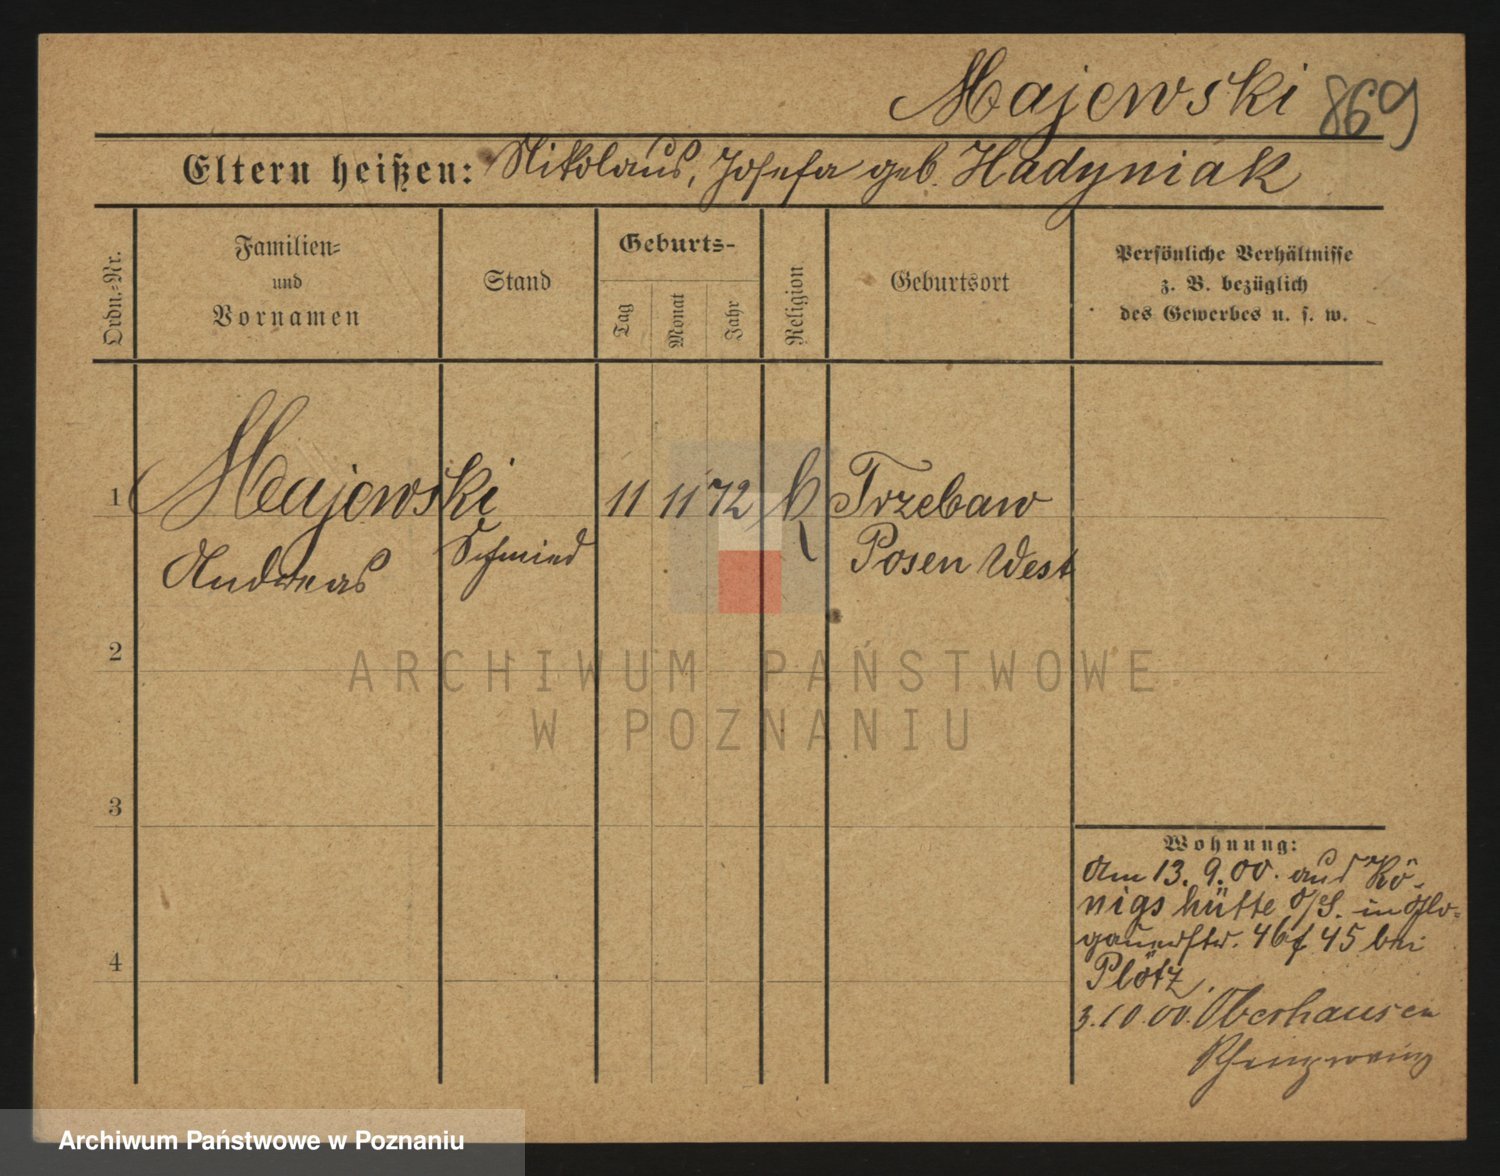 Majewski 869
Eltern heißen: Nikolaus, Josefa geb. Hadyniak
Ordn.-Nr.
Familien-
und
Vornamen
Stand
Geburts-
Tag
Monat
Jahr
Religion
Geburtsort
Persönliche Verhältnisse
z. B. bezüglich
des Gewerbes u. s. w.
1 Majewski 11 11 72 k Trzebaw
Andreas Schmied Posen West
2
3
4
Wohnung:
Am 13. 9. 00. aus Kö-
nigshütte O/S. in Glo-
gauerstr. 46 f 45 bei
Plötz.
3.10.00. Oberhausen
ARCHIWUM PAŃSTWOWE
W POZNANIU
Archiwum Państwowe w Poznaniu